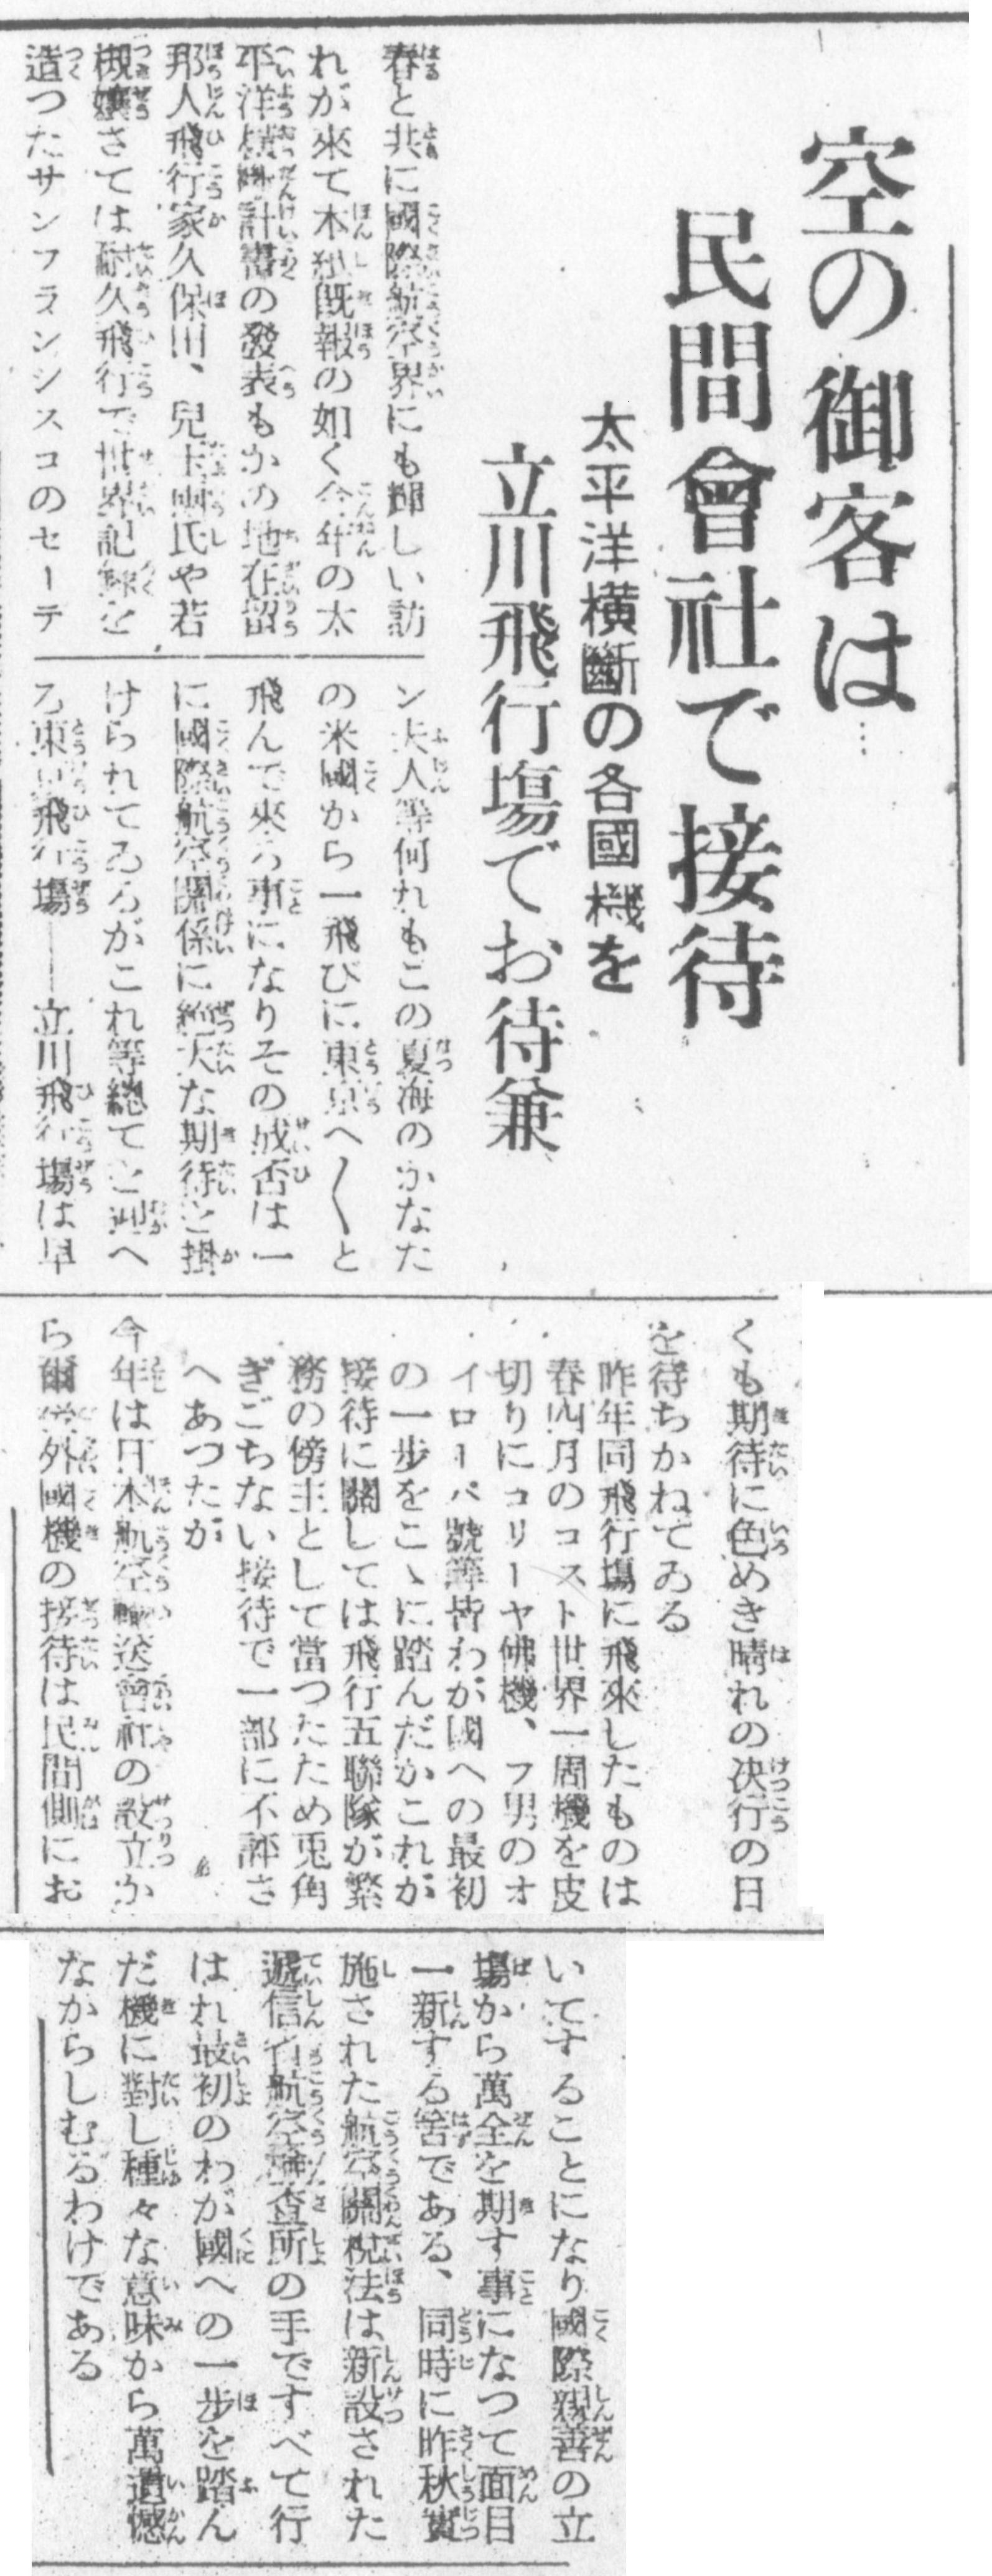 空の御客は…
民間會社で接待
太平洋横斷の各國機を
立川飛行場でお待兼
春と共に國際航空界にも輝しい訪
れが來て本紙既報の如く今年の太
平洋横斷計畫の發表もかの地在留
邦人飛行家久保田、兒玉兩氏や若
槻孃さては耐久飛行で世界記録を
造つたサンフランシスコのセーテ
ン夫人等何れもこの夏海のかなた
の米國から一飛びに東京へ〱と
飛んで來る事になりその成否は一
に國際航空關係に絶大な期待と掛
けられてゐるがこれ等總てを迎へ
る東京飛行場――立川飛行場は早
くも期待に色めき晴れの決行の日
を待ちかねてゐる
昨年同飛行場に飛來したものは
春四月のコスト世界一周機を皮
切りにコリーヤ佛機、フ男のオ
イローパ號等皆わが國への最初
の一歩をこゝに踏んだがこれが
接待に關しては飛行五聯隊が繁
務の傍主として當つたため兎角
ぎごちない接待で一部に不評さ
へあつたが
今年は日本航空輸送會社の設立か
ら爾後外國機の接待は民間側にお
いてすることになり國際親善の立
場から萬全を期す事になつて面目
一新する筈である、同時に昨秋實
施された航空關税法は新設された
遞信省航空檢査所の手ですべて行
はれ最初のわが國への一歩を踏ん
だ機に對し種々な意味から萬遺憾
なからしむるわけである